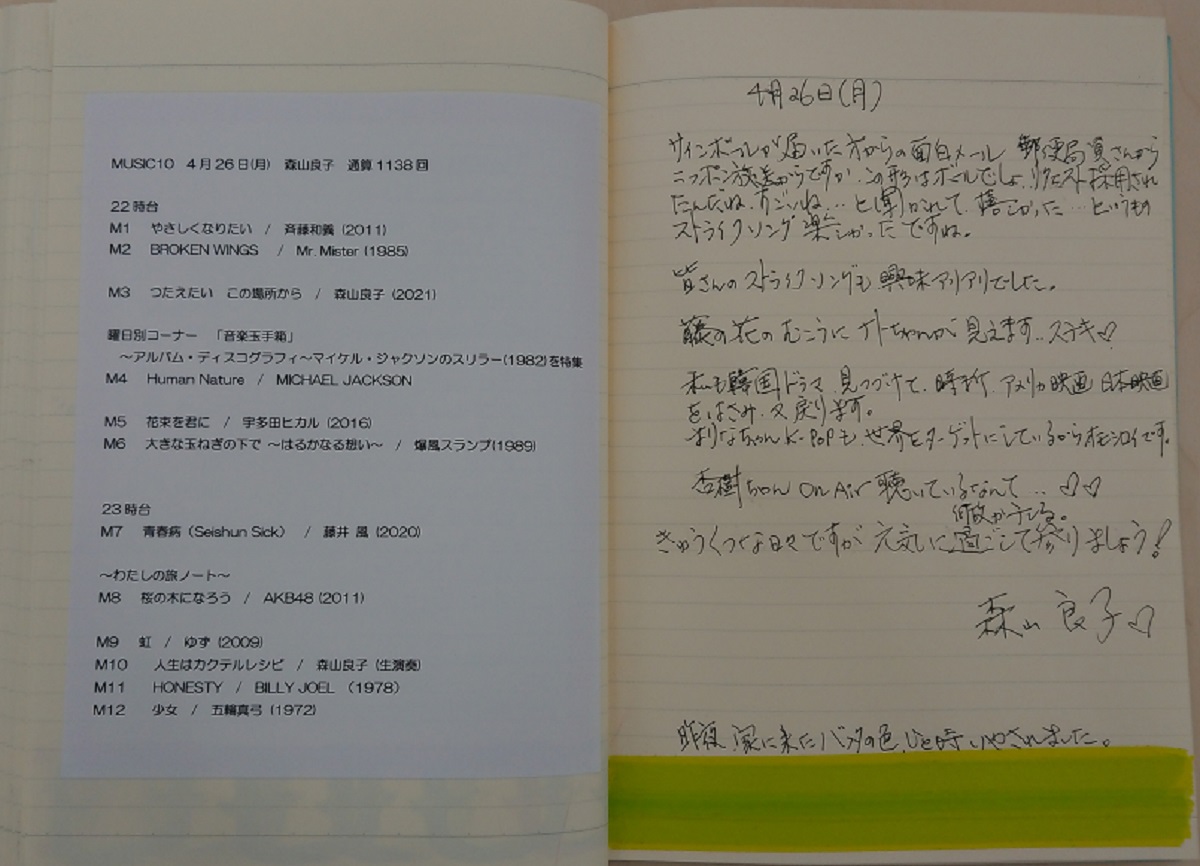 MUSIC10 4月26日(月) 森山良子 通算1138回
22時台
M1 やさしくなりたい / 斉藤和義 (2011)
M2 BROKEN WINGS / Mr. Mister (1985)
M3 つたえたい この場所から / 森山良子 (2021)
曜日別コーナー 「音楽玉手箱」
～アルバム・ディスコグラフィ～マイケル・ジャクソンのスリラー(1982)を特集
M4 Human Nature / MICHAEL JACKSON
M5 花束を君に / 宇多田ヒカル (2016)
M6 大きな玉ねぎの下で ～はるかなる想い～ / 爆風スランプ(1989)
23時台
M7 青春病 (Seishun Sick) / 藤井 風 (2020)
～わたしの旅ノート～
M8 桜の木になろう / AKB48 (2011)
M9 虹 / ゆず (2009)
M10 人生はカクテルレシピ / 森山良子 (生演奏)
M11 HONESTY / BILLY JOEL (1978)
M12 少女 / 五輪真弓 (1972)
4月26日(月)
サインボールが届いた方からの面白メール 郵便局員さんから
ニッポン放送からですか、この形はボールでしょ、リクエスト採用され
たんだね、すごいね… と聞かれて、落こかった… というもの
ストライクソング 楽しかったですね。
皆さんのストライクソングも興味アリアリでした。
藤の花のむこうに ちゃんが見えます.. ステキ♡
私も韓国ドラマ 見つづけて、時折、アメリカ映画 日本映画
をはさみ、又戻ります。
まりなちゃん K-POPも、世界をターゲットにしているからオモシロイです。
杏樹ちゃん On Air 聴いているなんて.. ♡♡
何故か テレる。
きゅうくつな日々ですが 元気に過ごして参りましょう!
森山 良子♡
昨夜 家に来たバッタの色、ひと時 いやされました。